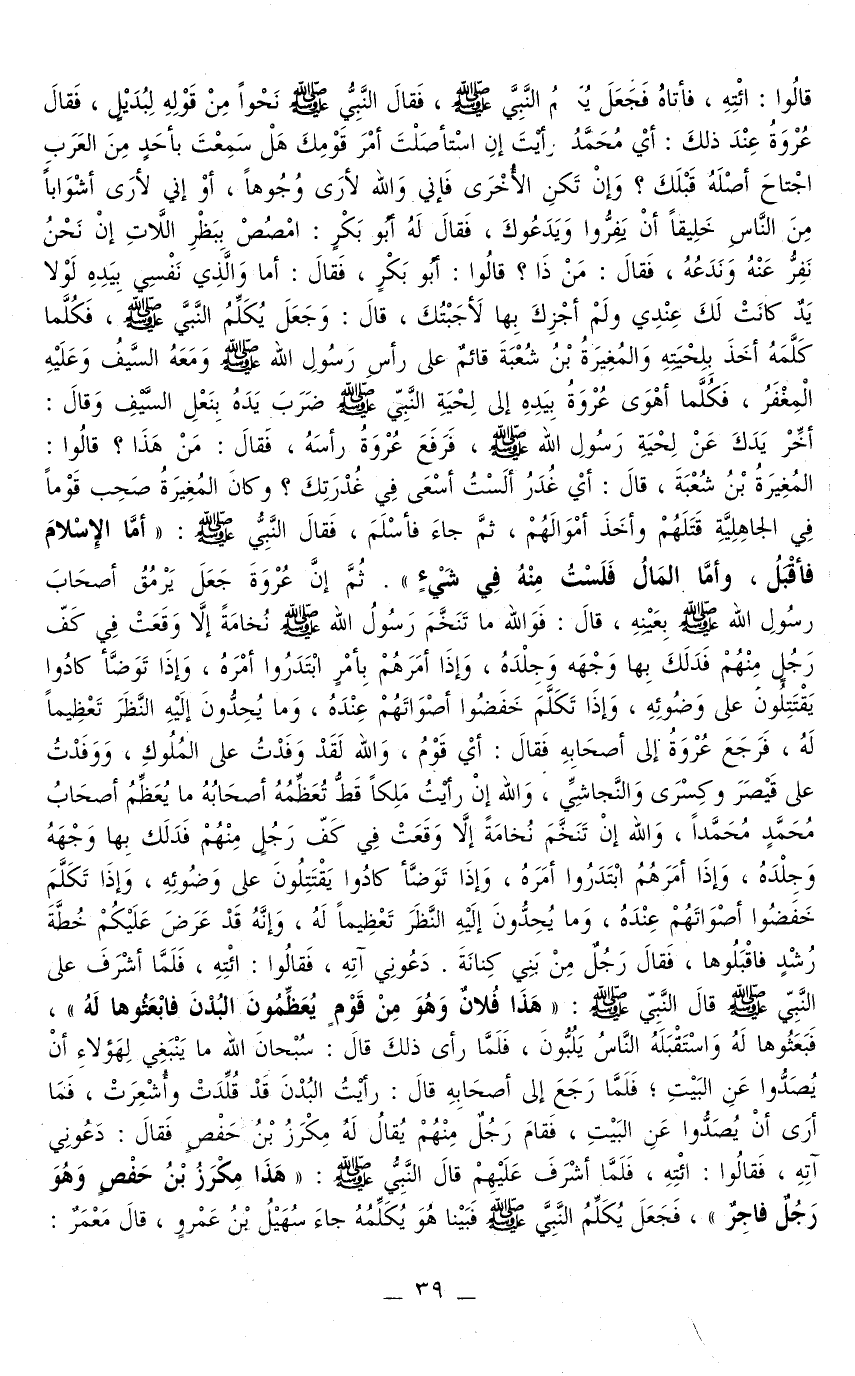 قالُوا : ائْتِهِ ، فأتاهُ فَجَعَلَ النَّبِيَّ ﷺ ، فَقالَ النَّبِيُّ ﷺ نَحْواً مِنْ قَوْلِهِ لِبُدَيْلٍ ، فَقالَ
عُرْوَةُ عِنْدَ ذلكَ : أيْ مُحَمَّدُ رأيْتَ إنِ اسْتأصَلْتَ أمْرَ قَوْمِكَ هَلْ سَمِعْتَ بأحَدٍ مِنَ العَرَبِ
اجْتاحَ أصْلَهُ قَبْلَكَ ؟ وَإنْ تَكنِ الأُخْرَى فَإني وَالله لأرَى وُجُوهاً ، أوْ إني لأرَى أشْوَاباً
مِنَ النَّاسِ خَلِيقاً أنْ يَفِرُّوا وَيَدَعُوكَ ، فَقالَ لَهُ أبُو بَكْرٍ : امْصُصْ بِبَظْرِ اللَّاتِ إنْ نَحْنُ
نَفِرُّ عَنْهُ وَنَدَعُهُ ، فَقالَ : مَنْ ذَا ؟ قالُوا : أبُو بَكْرٍ ، فَقالَ : أما وَالَّذِي نَفْسِي بِيَدِهِ لَوْلا
يَدٌ كانَتْ لَكَ عِنْدِي ولَمْ أجْزِكَ بِها لَأجَبْتُكَ ، قال : وَجَعَلَ يُكَلِّمُ النَّبِيَّ ﷺ ، فَكُلَّما
كَلَّمَهُ أخَذَ بِلِحْيَتِهِ وَالمُغِيرَةُ بْنُ شُعْبَةَ قائمٌ على رأسِ رَسُولِ الله ﷺ وَمَعَهُ السَّيفُ وَعَلَيْهِ
الْمِغْفَرُ ، فَكُلَّما أهْوَى عُرْوَةُ بِيَدِهِ إلى لِحْيَةِ النَّبِيّ ﷺ ضَرَبَ يَدَهُ بِنَعْلِ السَّيْفِ وَقالَ :
أخِّرْ يَدَكَ عَنْ لِحْيَةِ رَسُولِ الله ﷺ ، فَرَفَعَ عُرْوَةُ رأسَهُ ، فَقالَ : مَنْ هَذَا ؟ قالُوا :
المُغِيرَةُ بْنُ شُعْبَةَ ، قالَ : أيْ غُدَرُ ألَسْتُ أسْعَى فِي غُدْرَتِكَ ؟ وكانَ المُغِيرَةُ صَحِب قَوْماً
فِي الجاهِلِيَّةِ قَتَلَهُمْ وأخَذَ أمْوَالَهُمْ ، ثمَّ جاءَ فأسْلَمَ ، فَقالَ النَّبِيُّ ﷺ : « أمَّا الإسْلامَ
فأقْبَلُ ، وأمَّا المَالُ فَلَسْتُ مِنْهُ فِي شَيْءٍ » . ثُمَّ إنَّ عُرْوَةَ جَعَلَ يَرْمُقُ أصحَابَ
رسُولِ الله ﷺ بِعَيْنِهِ ، قالَ : فَوَالله ما تَنَخَّمَ رَسُولُ الله ﷺ نُخامَةً إلَّا وَقَعَتْ فِي كَفّ
رَجُلٍ مِنْهُمْ فَدَلَكَ بِها وَجْهَه وَجِلْدَهُ ، وَإذَا أمَرَهُمْ بِأمْرٍ ابْتَدَرُوا أمْرَهُ ، وَإذَا تَوَضَّأ كادُوا
يَقْتَتِلُونَ على وَضُوئِهِ ، وَإذَا تَكلَّمَ خَفَضُوا أصْوَاتَهُمْ عِنْدَهُ ، وَما يُحِدُّونَ إلَيْهِ النَّظَرَ تَعْظِيماً
لَهُ ، فَرَجَعَ عُرْوَةُ إلى أصْحَابِهِ فَقالَ : أيْ قَوْمُ ، وَالله لَقَدْ وَفَدْتُ على المُلُوكِ ، وَوَفَدْتُ
على قَيْصَرَ وكِسْرَى وَالنَّجاشِيِّ ، وَالله إنْ رأيْتُ مَلِكاً قَطُّ تُعَظِّمُهُ أصحَابُهُ ما يُعَظِّمُ أصحَابُ
مُحَمَّدٍ مُحَمَّداً ، وَالله إنْ تَنَخَّمَ نُخامَةً إلَّا وَقَعَتْ فِي كَفّ رَجُلٍ مِنْهُمْ فَدَلَك بها وَجْهَهُ
وَجِلْدَهُ ، وَإذَا أمَرَهُمُ ابْتَدَرُوا أمَرَهُ ، وَإذَا تَوَضَّأ كادُوا يَقْتَتِلُونَ على وَضُوئِهِ ، وَإذَا تَكَلَّمَ
خَفَضُوا أصْوَاتَهُمْ عِنْدَهُ ، وَما يُحِدُّونَ إلَيْهِ النَّظَرَ تَعْظِيماً لَهُ ، وَإنَّهُ قَدْ عَرَضَ عَلَيْكُمْ خُطَّةَ
رُشْدٍ فاقْبَلُوها ، فَقالَ رَجُلٌ مِنْ بَنِي كِنانَةَ . دَعُونِي آتِهِ ، فَقالُوا : ائْتِهِ ، فَلَمَّا أشْرَفَ على
النَّبِيّ ﷺ قالَ النَّبِيّ ﷺ : « هَذَا فُلانٌ وَهُوَ مِنْ قَوْمٍ يُعَظِّمُونَ البُدْنَ فابْعَثُوها لَهُ » ،
فَبَعَثُوها لَهُ وَاسْتَقْبَلَهُ النَّاسُ يَلَبُّونَ ، فَلَمَّا رأى ذلكَ قالَ : سُبْحانَ الله ما يَنْبَغِي لِهَؤلاءِ أنْ
يُصَدُّوا عَنِ البَيْتِ ؛ فَلَمَّا رَجَعَ إلى أصْحابِهِ قالَ : رأيْتُ البُدْنَ قَدْ قُلِّدَتْ وأُشْعِرَتْ ، فَمَا
أرَى أنْ يُصَدُّوا عَنِ البَيْتِ ، فَقامَ رَجُلٌ مِنْهُمْ يُقالُ لَهُ مِكْرَزُ بْنُ حَفْصٍ فَقالَ : دَعُونِي
آتِهِ ، فَقالُوا : ائْتِهِ ، فَلَمَّا أشْرَفَ عَلَيْهِمْ قالَ النَّبِيُّ ﷺ : « هَذَا مِكْرَزُ بْنُ حَفْصٍ وَهُوَ
رَجُلٌ فاجِرٌ » ، فَجَعَلَ يُكَلِّمُ النَّبِيَّ ﷺ فَبَيْنا هُوَ يُكَلِّمُهُ جاءَ سُهَيْلُ بْنُ عَمْرٍو ، قالَ مَعْمَرٌ :
_ ٣٩ _